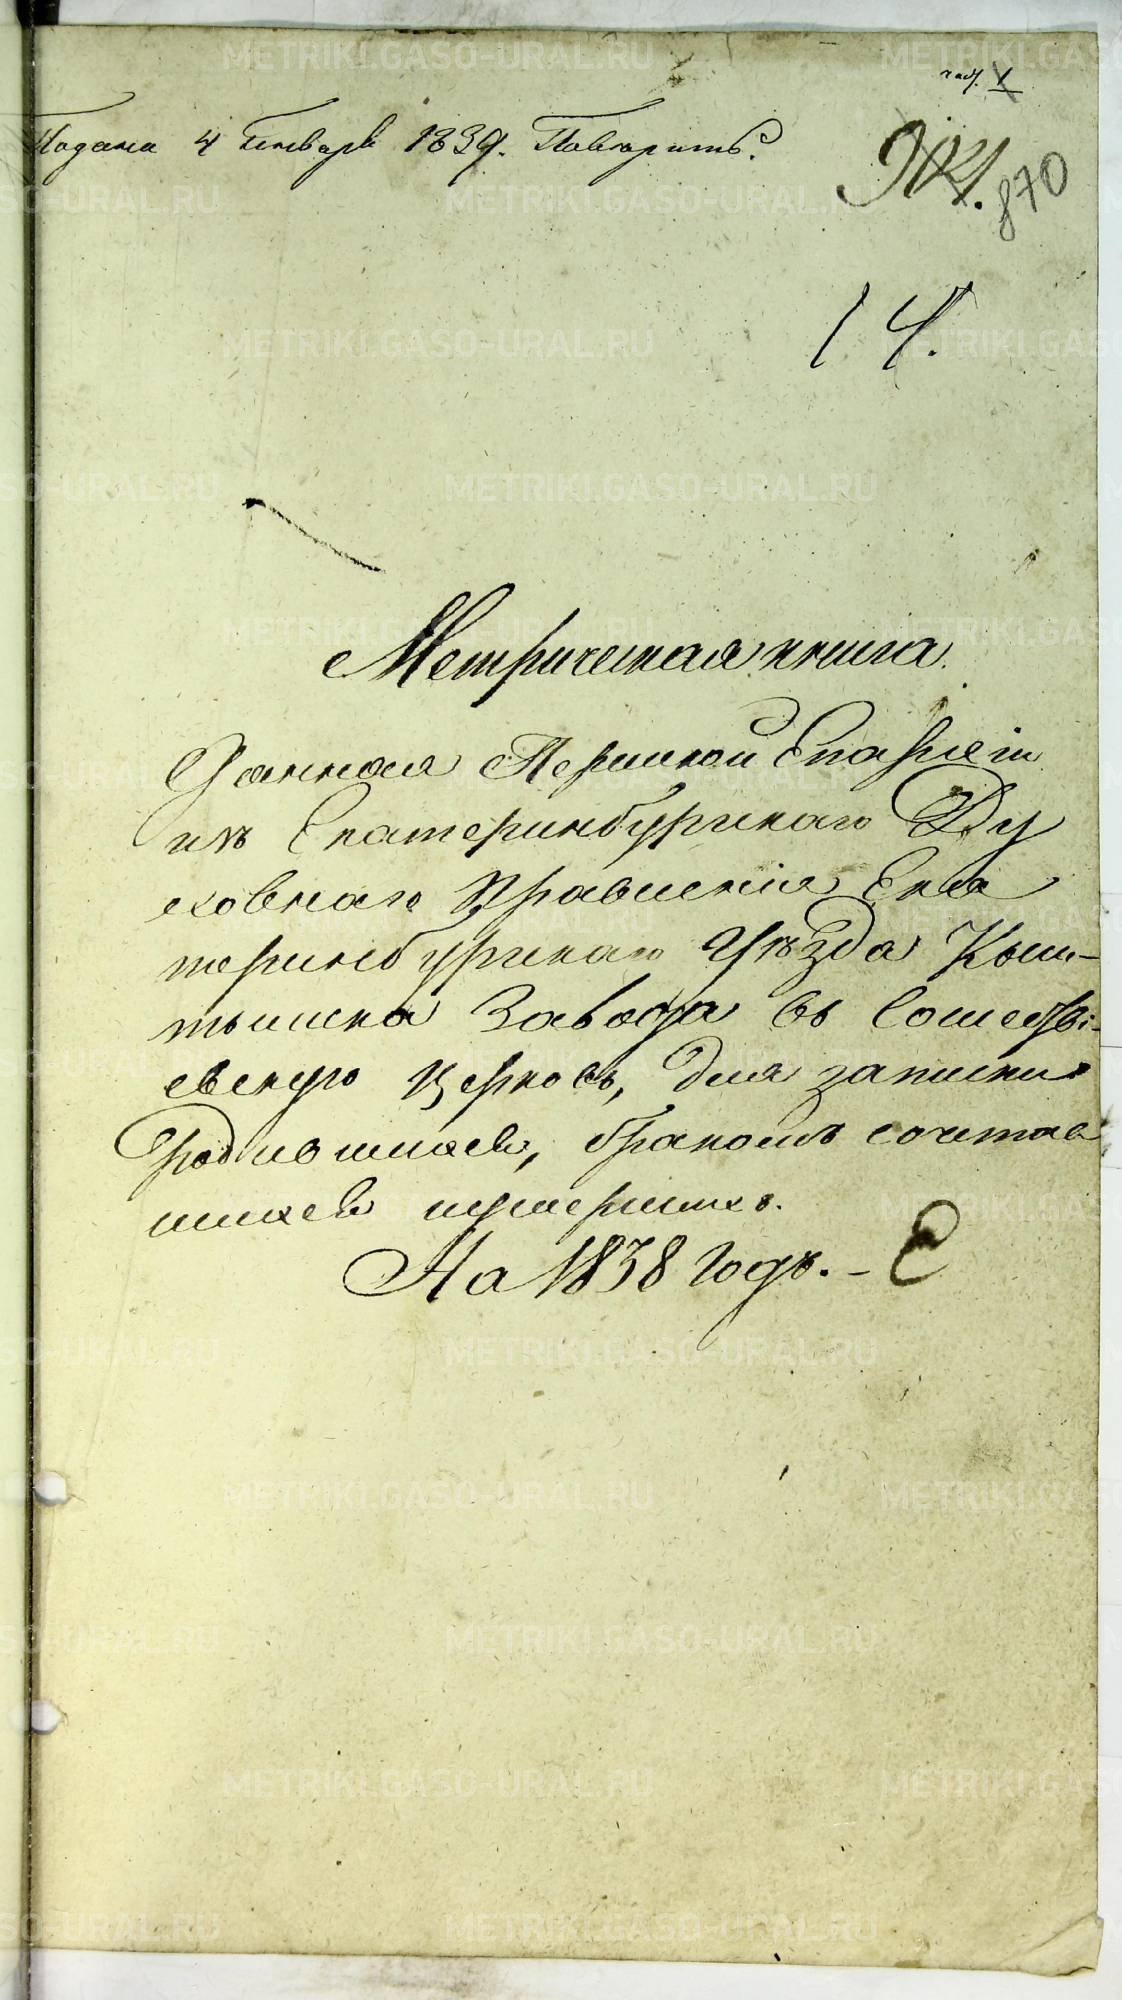 част. 1
Подана 4 Генваря 1839. Повѣрить.
870
14.
Метрическая книга.
Данная Пермской Епархіи
изъ Екатеринбургскаго Ду
ховнаго Правленія Ека
теринбургскаго Уѣзда Кыш-
тымска Завода въ Сошестві-
евскую Церковь, для записки
родившихся, бракомъ сочетав
шихся и умершихъ.
На 1838 годъ. –